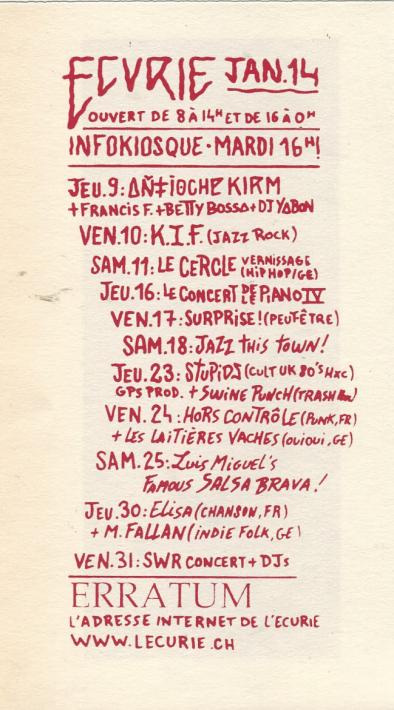 ECURIE JAN.14
OUVERT DE 8 À 14H ET DE 16 À 0H
INFOKIOSQUE · MARDI 16H!
JEU.9: ΔÑ‡ÏΘCHE KIRM
+ FRANCIS F. + BETTY BOSSA + DJ YABON
VEN.10: K.I.F. (JAZZ ROCK)
SAM.11: LE CERCLE VERNISSAGE (HIPHOP/GE)
JEU.16: LE CONCERT DE LE PIANO IV
VEN.17: SURPRISE! (PEUT-ÊTRE)
SAM.18: JAZZ THIS TOWN!
JEU.23: STUPIDS (CULT UK 80'S HXC)
GPS PROD. + SWINE PUNCH (TRASH
VEN. 24: HORS CONTRÔLE (PUNK, FR)
+ LES LAITIÈRES VACHES (OUIOUI, GE)
SAM.25: Luis Miguel's
FAMOUS SALSA BRAVA!
JEU.30: ELISA (CHANSON, FR)
+ M. FALLAN (INDIE FOLK, GE)
VEN.31: SWR CONCERT + DJs
ERRATUM
L'ADRESSE INTERNET DE L'ECURIE
WWW.LECURIE.CH